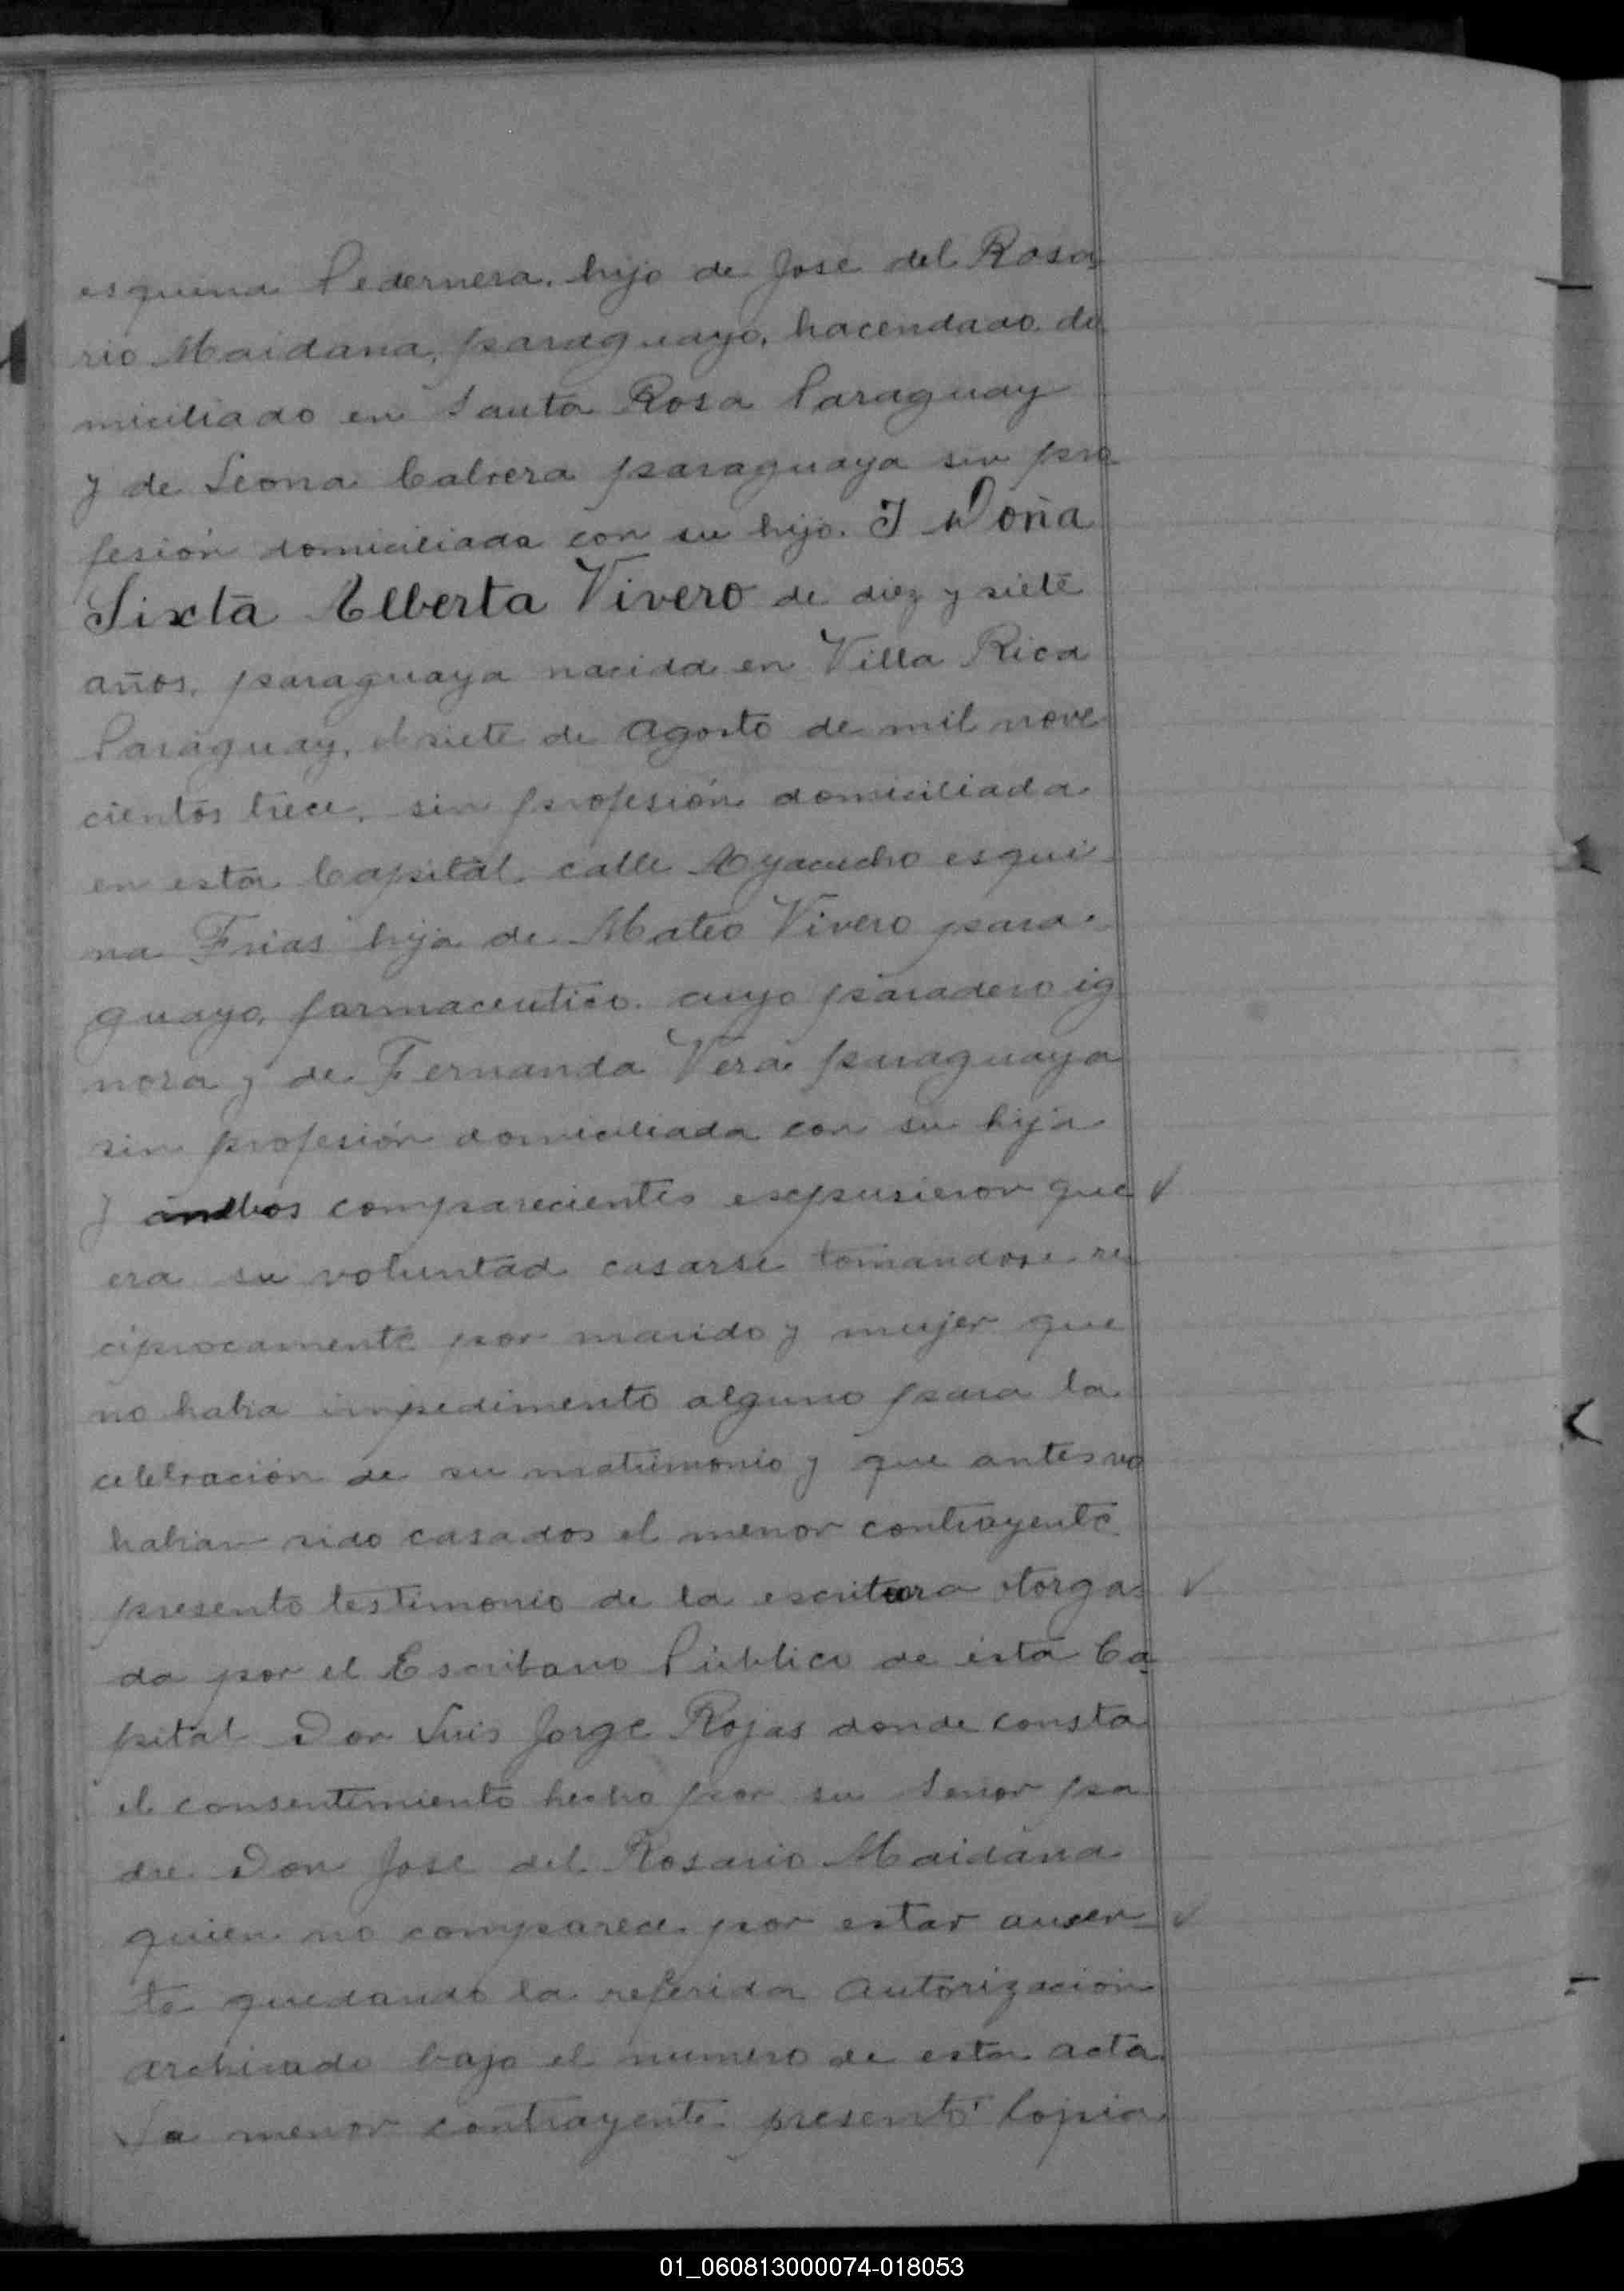 esquina Pedernera, hijo de José del Rosa-
rio Maidana, paraguayo, hacendado do
miciliado en Santa Rosa Paraguay
y de Leona Cabrera paraguaya sin pro
fesión domiciliada con su hijo. Y Doña
Sixta Alberta Vivero de diez y siete
años, paraguaya nacida en Villa Rica
Paraguay, el siete de Agosto de mil nove
cientos trece, sin profesión domiciliada
en esta Capital calle Ayacucho esqui-
na Frias hija de Mateo Vivero para-
guayo, farmaceutico. cuyo paradero ig
nora y de Fernanda Vera paraguaya
sin profesión domiciliada con su hija
Y ambos comparecientes expusieron que
era su voluntad casarse tomandose re
ciprocamente por marido y mujer que
no habia impedimento alguno para la
celebración de su matrimonio y que antes no
habian sido casados el menor contrayente
presentó testimonio de la escritura otorga-
da por el Escribano Público de ésta Ca-
pital Don Luis Jorge Rojas donde consta
el consentimiento hecho por su Señor pa
dre Don José del Rosario Maidana
quien no comparece por estar ausen-
te quedando la referida autorización
archivado bajo el numero de esta acta
La menor contrayente presentó Copia
01_060813000074-018053